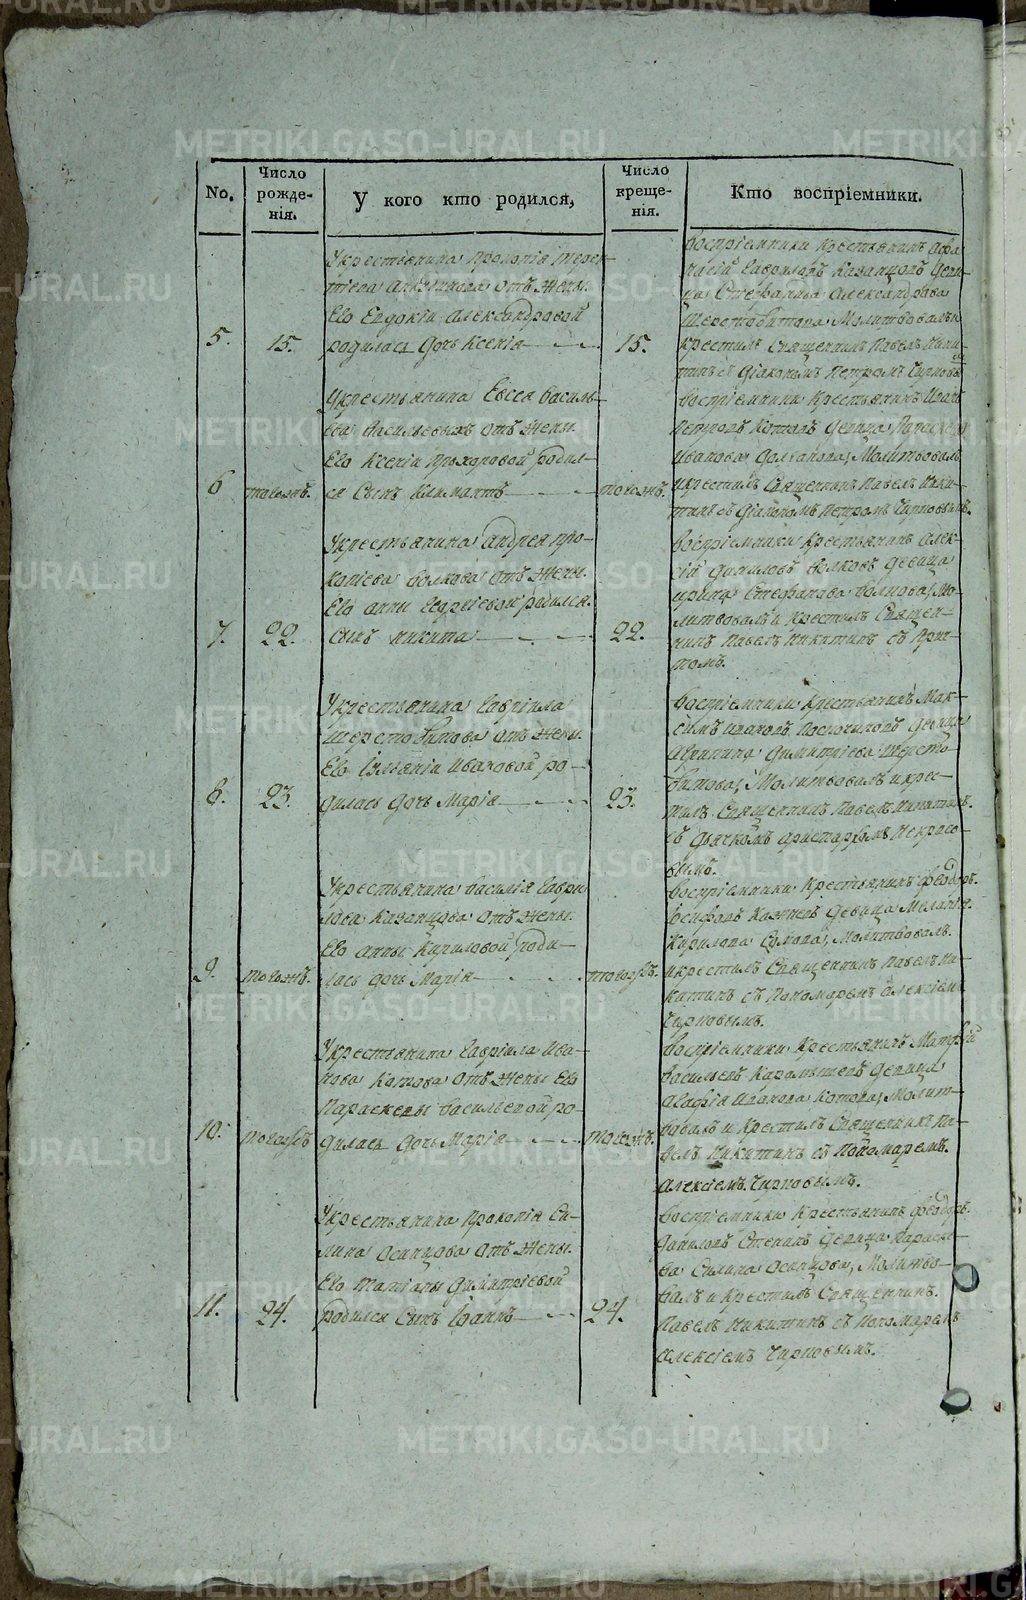 No.
Число рожде-
нія.
У кого кто родился,
Число креще-
нія.
Кто воспріемники.
5.
15.
Укрестьянина Прокопія Терен-
тіева отъ жены
Его Евдокіи Александровой
родилась Дочь Ксенія
15.
Воспріемники Крестьянинъ Афа-
насій Гавриловъ Казанцовъ Деви-
ца Стефанида Александрова
Шерстобитова, Молитвовалъ и
крестилъ Священникъ Павелъ Ники-
тинъ съ Діакономъ Петромъ
6
тогожъ.
Укрестьянина Евсея Василь-
ева Васильевыхъ отъ жены
Его Ксеніи Прохоровой родил-
ся Сынъ Климантъ
тогожъ.
Воспріемники Крестьянинъ Иванъ
Петровъ Котовъ Девица Параскева
Иванова Молитвовалъ
икрестилъ Священникъ Павелъ Ники-
тинъ съ Діакономъ Петромъ
7.
22.
Укрестьянина Андрея Про-
копіева Волкова отъ жены
Его Анны родился
сынъ Никита
22.
Воспріемники Крестьянинъ Алек-
сій Даниловъ Волковъ Девица
Ирина Стефанова Волкова, Мо-
литвовалъ и Крестилъ Священ-
никъ Павелъ Никитинъ съ При-
томъ.
8.
23.
Укрестьянина Гавріила
Шерстобитова отъ жены
Его Іуліаніи Ивановой ро-
дилась дочь Марія
23.
Воспріемники Крестьянинъ Мак-
симъ Ивановъ Девица
Димитріева Шерсто-
битова, Молитвовалъ икрес-
тилъ Священникъ Павелъ Никитинъ
съ Дьячкомъ Аристархомъ Некрасо-
вымъ.
9.
тогожъ.
Укрестьянина Василія Гаври
лова Казанцова отъ жены
Его Анны Кириловой роди-
лась дочь Марія
тогожъ.
Воспріемники Крестьянинъ Феодоръ
Девица Меланія
Кирилова Молитвовалъ
икрестилъ Священникъ Павелъ Ни-
китинъ съ Пономаремъ Алексіемъ
10.
тогожъ
Укрестьянина Гавріила Ива-
нова Котова отъ жены Его
Параскевы Васильевой ро-
дилась Дочь Марія
тогожъ.
Воспріемники Крестьянинъ Матфій
Васильевъ Карамышевъ Девица
Агафія Иванова Котова, Молит-
вовалъ и Крестилъ Священникъ Па-
велъ Никитинъ съ Пономаремъ
Алексіемъ
11.
24.
Укрестьянина Прокопія Си-
лина Осинцова отъ жены
Его Татіаны Димитріевой
родился Сынъ Іоаннъ
24.
Воспріемники Крестьянинъ Феодоръ
Даниловъ Девица Параске-
ва Силина Осинцова, Молитво-
валъ и Крестилъ Священникъ
Павелъ Никитинъ съ Пономаремъ
Алексіемъ
METRIKI.GASO-URAL.RU